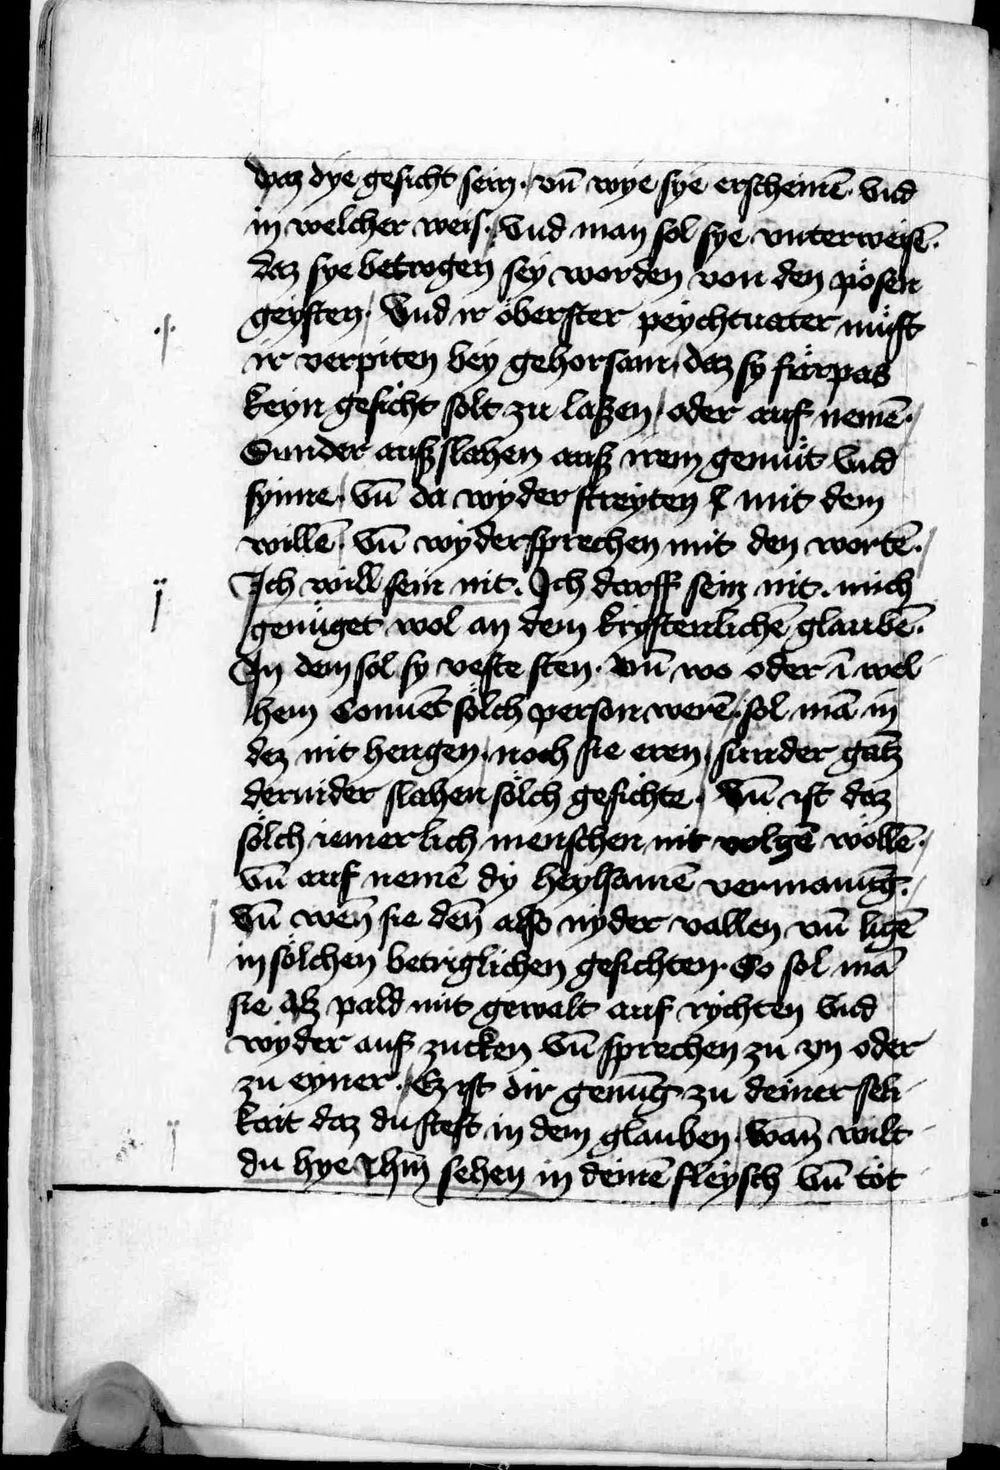 waz dye gesicht sein. vn̄ wye sye erscheinē. vnd
in welcher weis. Vnd man sol sye vnterweisē.
daz sye betrogen sey worden von den pösen
geysten. Vnd ir öberster peychtuater müst
ir verpiten bey gehorsam. daz sy fürpas
keyn gesicht solt zu laßen / oder auf nemē. /
Sunder außslahen auß irem gemüt vnd
synne. vn̄ da wyder streyten mit dem
willē. vn̄ wydersprechen mit den wortē. /
Ich will sein nit. Ich darff sein nit. mich
genüget wol an dem krystenlichē glaubē.
In dem sol sy veste sten. vn̄ wo oder ī wel
hem Conuēt sölch person werē. sol mā in
dez nit hengen, noch sie eren / sunder gātz
dernider slahen sölch gesichte. Vn̄ ist daz
sölch iemerlich menschen nit volgē wöllē. /
vn̄ auf nemē dy heylsamē vermanūg. /
Vn̄ wen̄ sie den̄ also nyder vallen vn̄ ligē
in sölchen betriglichen gesichten. So sol mā
sie alz pald mit gewalt auf rychten vnd
wyder auf zucken vn̄ sprechen zu yn oder
zu eyner. / Ez ist dir genūg zu deiner seli
kait daz du stest in dem glauben. wan̄ wilt
du hye xp̄m sehen in deinē fleysch vn̄ töt